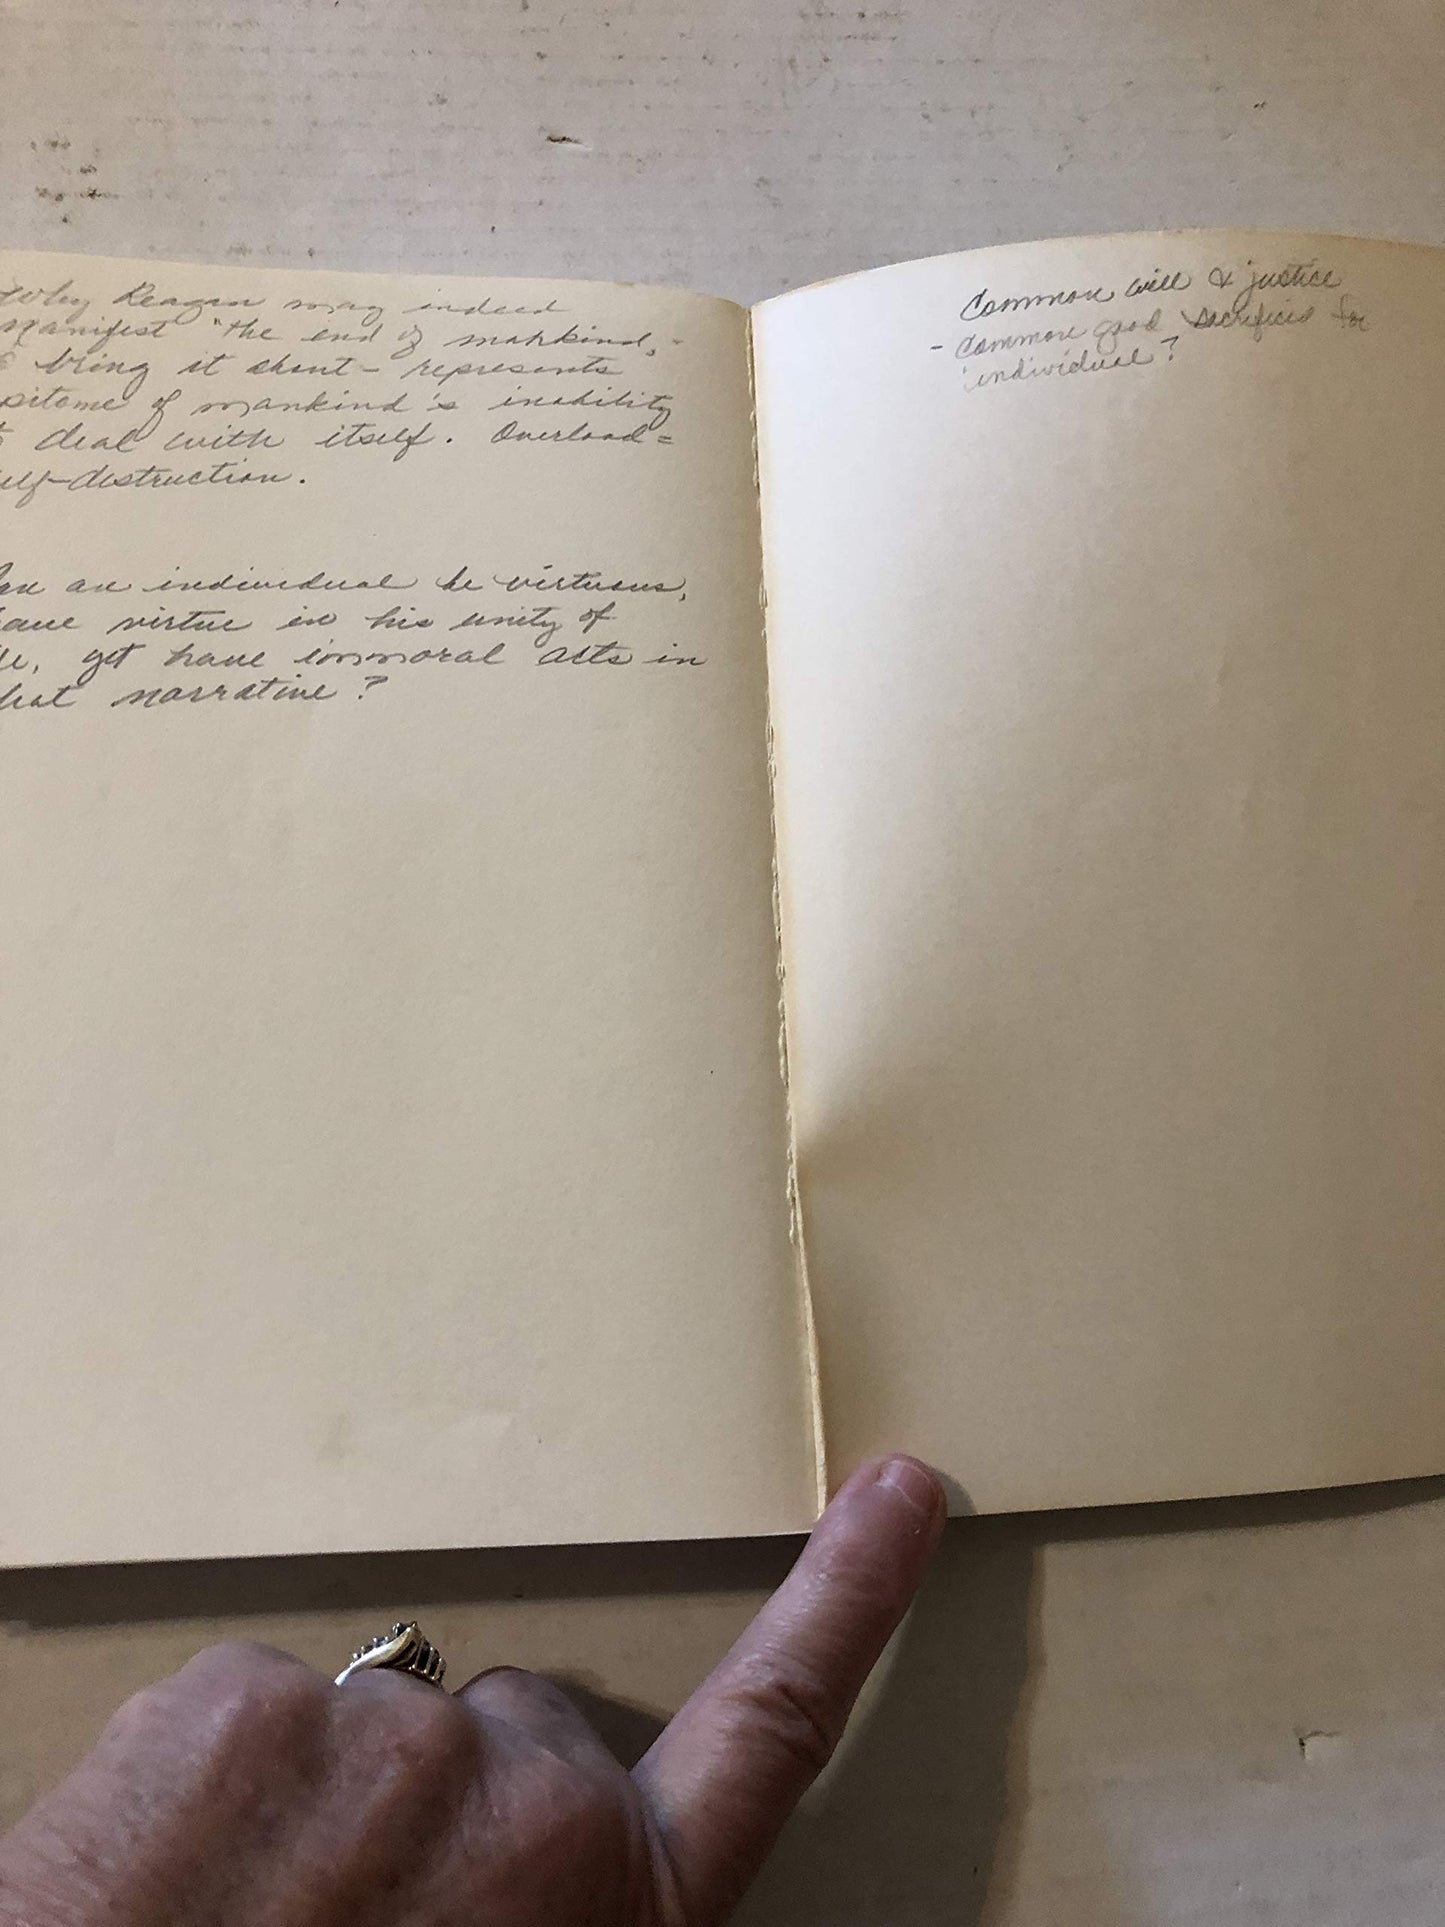 Why Reagan may indeed
manifest "the end of mankind,"
& bring it about - represents
epitome of mankind's inability
to deal with itself. Overload =
self-destruction.
Can an individual be virtuous,
have virtue in his unity of
life, yet have immoral acts in
that narrative?
Common will & justice
- Common good sacrificed for
individual?